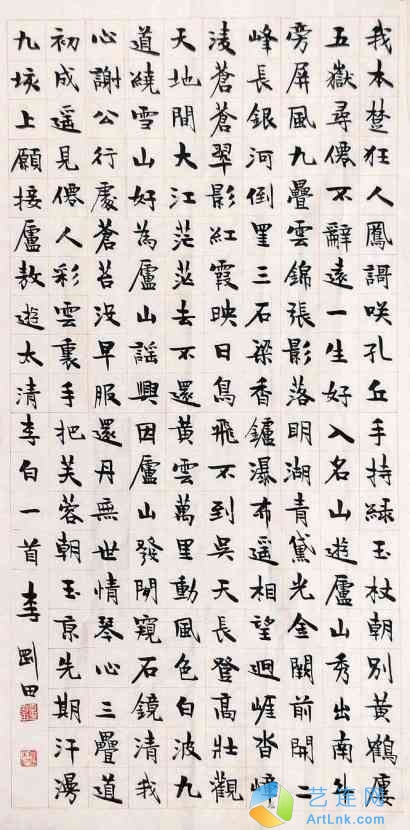 我本楚狂人鳳謌咲孔丘手持綠玉杖朝別黃鶴廔
五嶽尋僊不辭遠一生好入名山遊廬山秀出南斗
旁屏風九疊雲錦張影落明湖青黛光金闕前開二
峰長銀河倒罣三石梁香鑪瀑布遥相望迴崕沓嶂
淩蒼蒼翠影紅霞映日鳥飛不到吳天長登高壯觀
天地間大江茫茫去不還黃雲萬里動風色白波九
道繞雪山好為廬山謠興因廬山發閒窺石鏡清我
心謝公行處蒼苔没早服還丹無世情琴心三疊道
初成遥見僊人彩雲裏手把芙蓉朝玉京先期汗漫
九垓上願接廬敖遊太清李白一首李剛田
艺连网
ArtLnk.com